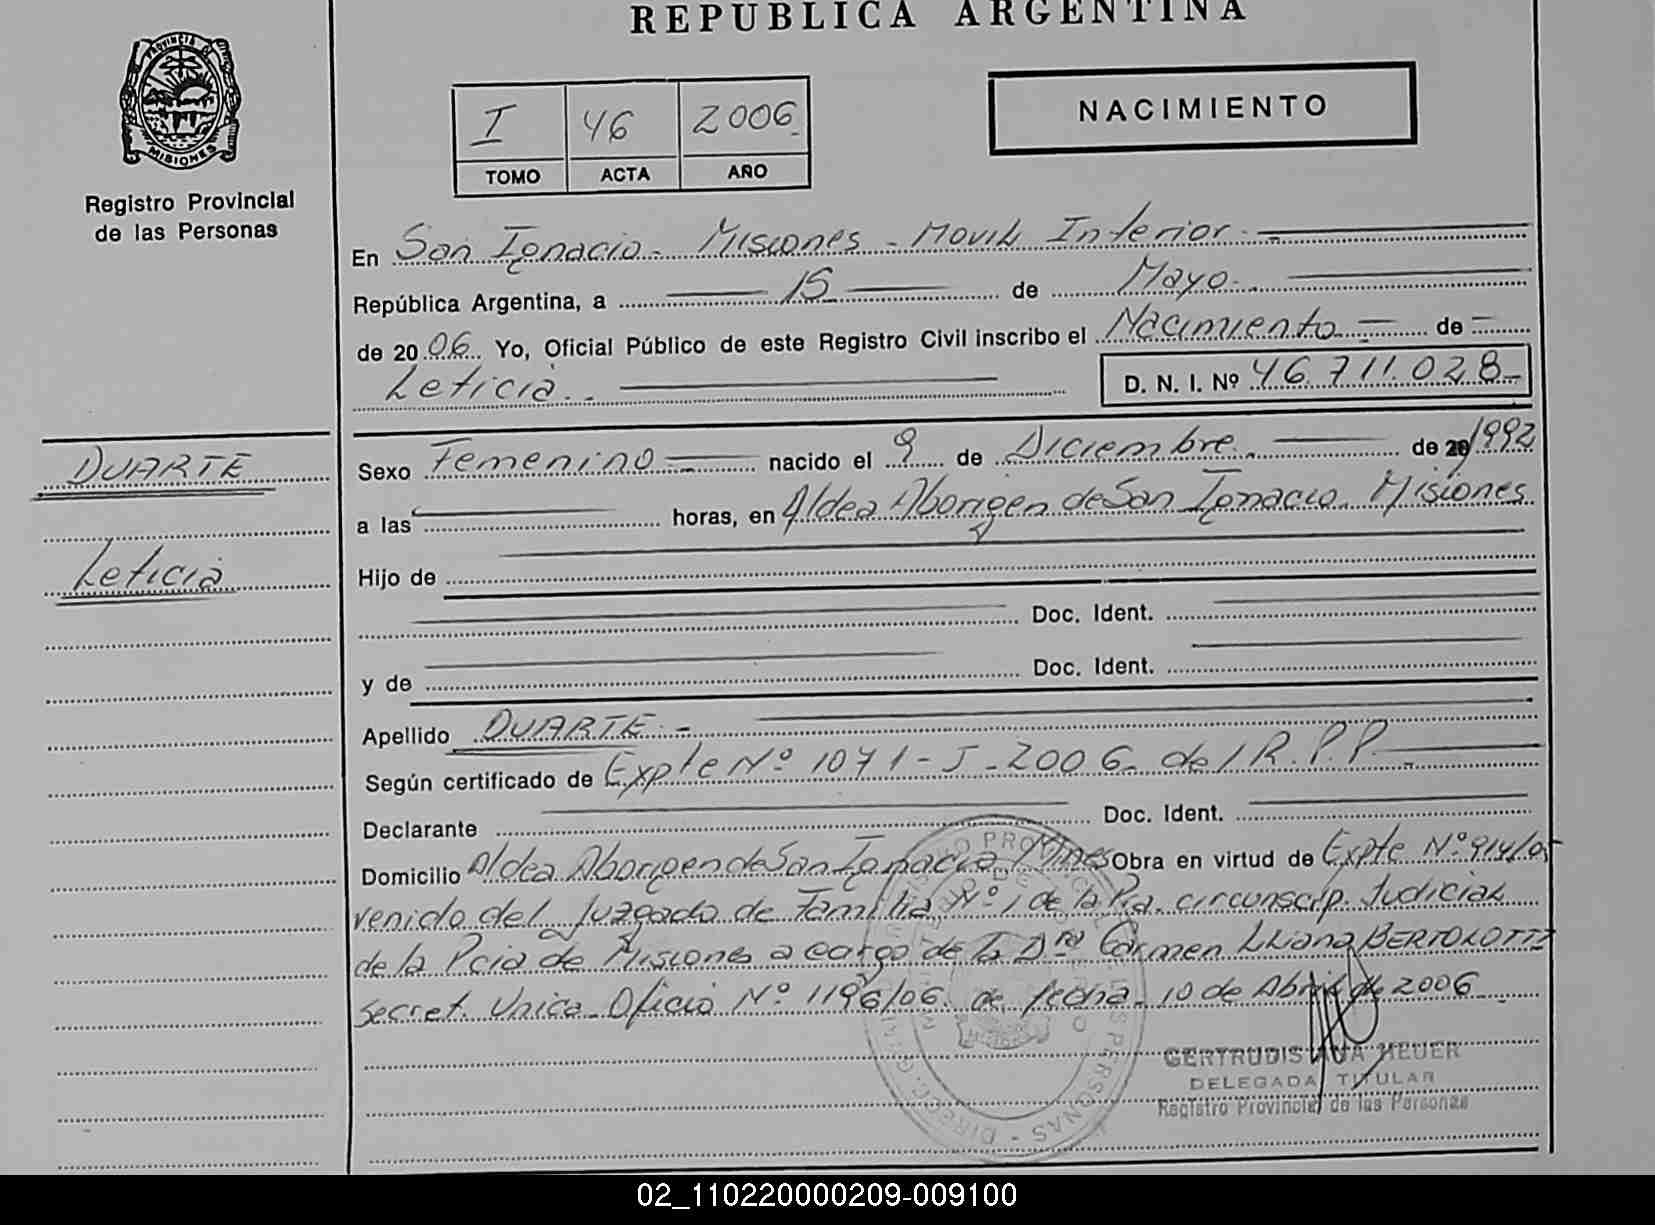 REPUBLICA ARGENTINA
PROVINCIA DE
MISIONES
Registro Provincial
de las Personas
I 46 2006
TOMO ACTA AÑO
NACIMIENTO
En San Ignacio - Misiones - Movil Interior -
República Argentina, a 15 de Mayo.
de 2006. Yo, Oficial Público de este Registro Civil inscribo el Nacimiento - de -
Leticia. - D. N. I. Nº 46.711.028-
DUARTE
Leticia
Sexo Femenino nacido el 9 de Diciembre. de 20 1992
a las horas, en Aldea Aborigen de San Ignacio Misiones
Hijo de
Doc. Ident.
y de Doc. Ident.
Apellido DUARTE. -
Según certificado de Expte Nº 1071 - J - 2006. del R.P.P.
Declarante Doc. Ident.
Domicilio Aldea Aborigen de San Ignacio Mnes Obra en virtud de Expte Nº 914/05
venido del Juzgado de Familia Nº 1 de la Pra. circunscrip. Judicial
de la Pcia de Misiones a cargo de la Dra Carmen Liliana BERTOLOTTI
Secret. Unica. Oficio Nº 1196/06. de fecha 10 de Abril de 2006
GERTRUDIS HEUER
DELEGADA TITULAR
Registro Provincial de las Personas
02_110220000209-009100